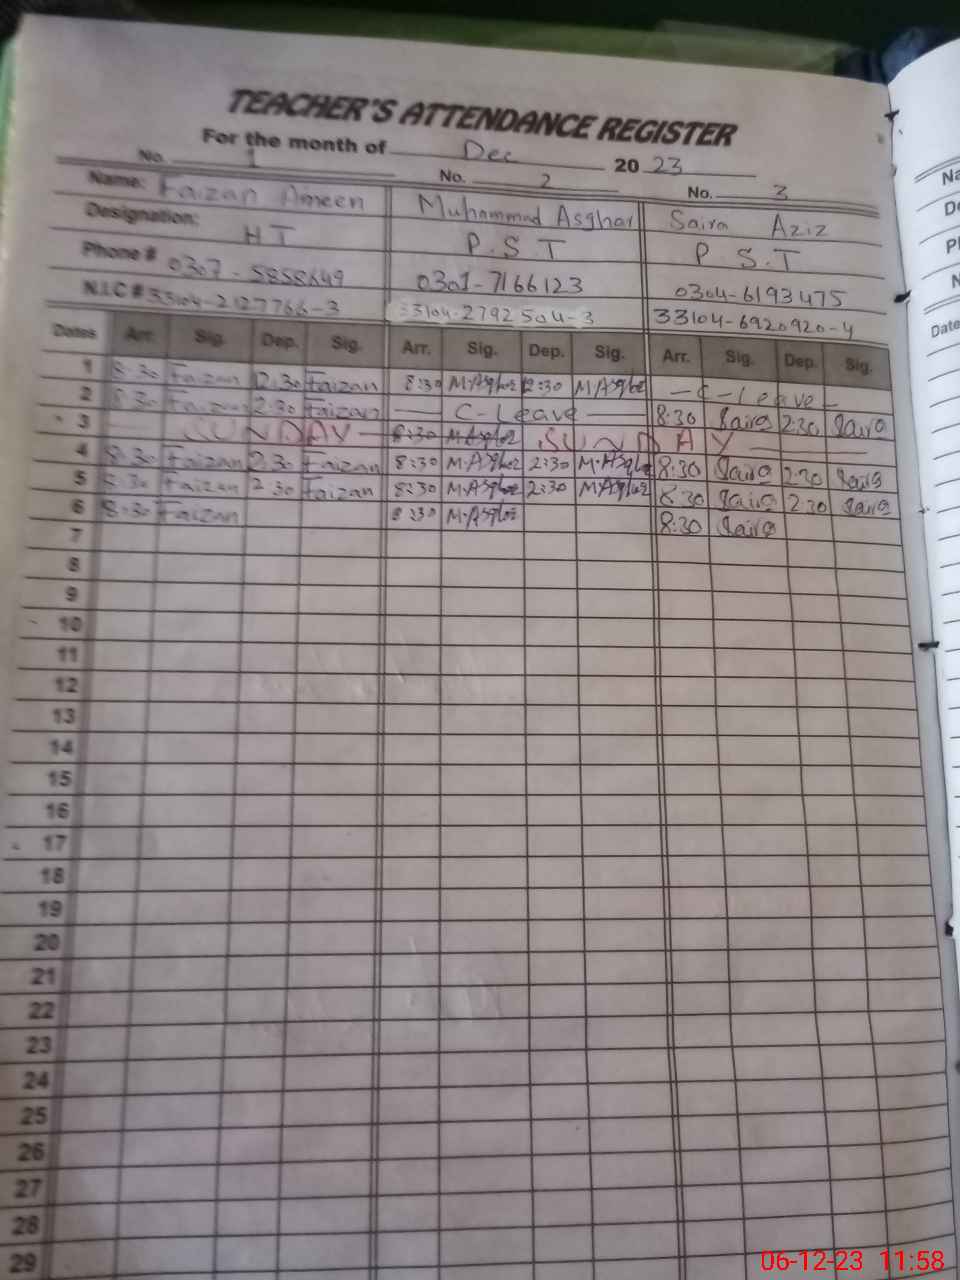 TEACHER'S ATTENDANCE REGISTER
For the month of Dec 20 23
No. 1 No. 2 No. 3
Name: Faizan Ameen Muhammad Asghar Saira Aziz
Designation: HT P.S.T P.S.T
Phone # 0307-5858649 0301-7166123 0304-6193475
N.I.C # 33104-2127766-3 33104-2792504-3 33104-6920920-4
Dates Arr. Sig. Dep. Sig. Arr. Sig. Dep. Sig. Arr. Sig. Dep. Sig.
1 8:30 Faizan 12:30 Faizan 8:30 M.Asghar 12:30 M.Asghar — C-Leave —
2 8:30 Faizan 2:30 Faizan — C-Leave — 8:30 Saira 2:30 Saira
3 SUNDAY 8:30 M.Asghar SUNDAY
4 8:30 Faizan 2:30 Faizan 8:30 M.Asghar 2:30 M.Asghar 8:30 Saira 2:30 Saira
5 8:30 Faizan 2:30 Faizan 8:30 M.Asghar 2:30 M.Asghar 8:30 Saira 2:30 Saira
6 8:30 Faizan 8:30 M.Asghar 8:30 Saira
7
8
9
10
11
12
13
14
15
16
17
18
19
20
21
22
23
24
25
26
27
28
29
Na
De
N
Date
06-12-23 11:58